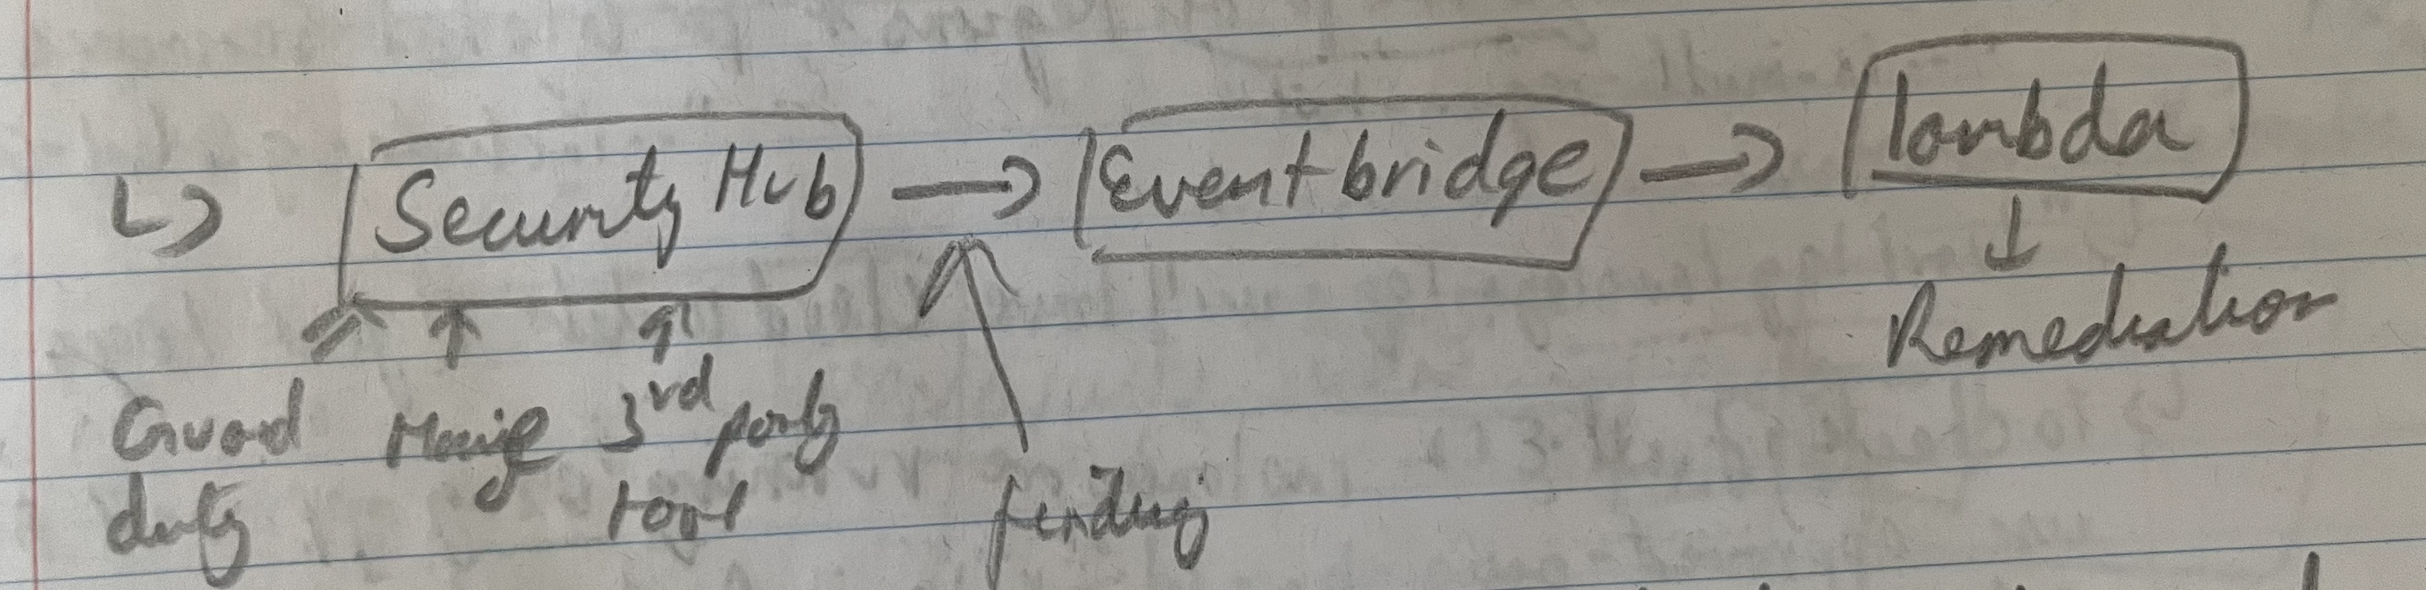 ↳ Security Hub → Eventbridge → lambda
↓
Remediation
Guard duty
Macie
3rd party tool
finding